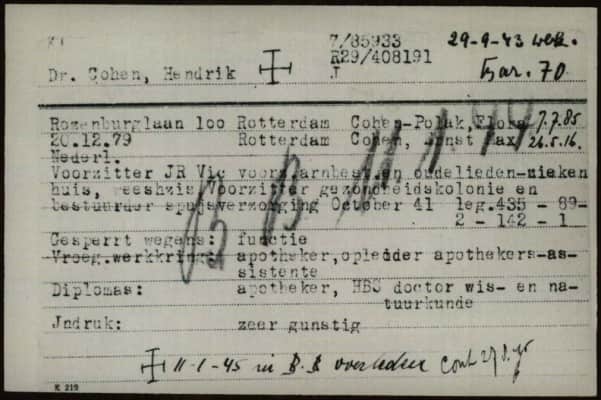 7/85933 29-9-43 Web.
R29/408191
Dr. Cohen, Hendrik J Bar. 70
Rozenburglaan 100 Rotterdam Cohen-Polak, Flora 7.7.85
20.12.79 Rotterdam Cohen, Ernst Max 26.5.16.
Nederl.
Voorzitter JR Vic voorz armbest en oudelieden-zieken
huis, weeshzis Voorzitter gezondheidskolonie en
bestuurder spijsverzorging October 41 leg.435 - 89-
2 - 142 - 1
Gesperrt wegens: functie
Vroeg.werkkring: apotheker, opleider apothekers-as-
sistente
Diplomas: apotheker, HBS doctor wis- en na-
tuurkunde
Jndruk: zeer gunstig
B B 11 1
11-1-45 in B.B overleden Cont
K 219